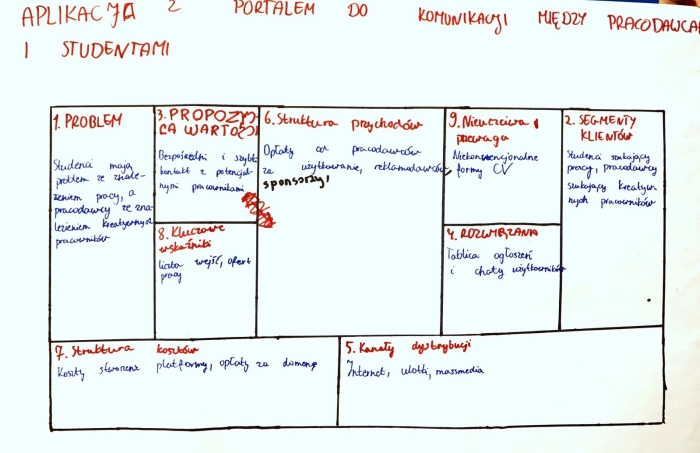 APLIKACJA Z PORTALEM DO KOMUNIKACJI MIĘDZY PRACODAWCA
I STUDENTAMI
1. PROBLEM
Studenci mają
problem ze znale-
zieniem pracy, a
pracodawcy ze zna-
lezieniem kreatywnych
pracowników
3. PROPOZY
CA WARTOŚCI
Bezpośredni i szybki
kontakt z potencjal-
nymi pracownikami
8. Kluczowe
wskaźniki
liczba wejść, ofert
pracy
6. Struktura przychodów
Opłaty od pracodawców
za użytkowanie, reklamodawców,
sponsorzy,
9. Nieuczciwa
przewaga
Niekonwencjonalne
formy CV
4. ROZWIĄZANIA
Tablica ogłoszeń
i chaty użytkowników
2. SEGMENTY
KLIENTÓW
Studenci szukający
pracy, pracodawcy
szukający kreatyw
nych pracowników
7. Struktura kosztów
Koszty stworzenia platformy, opłaty za domenę
5. Kanały dystrybucji
Internet, ulotki, massmedia